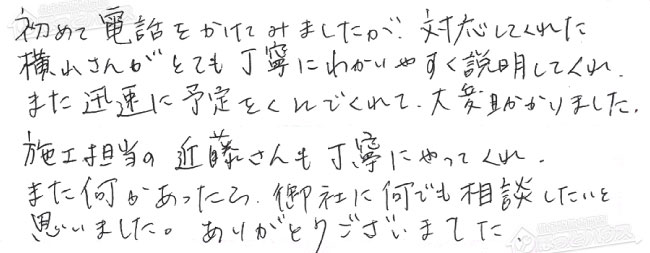 初めて電話をかけてみましたが、対応してくれた
横山さんがとても丁寧にわかりやすく説明してくれ、
また迅速に予定をくんでくれて、大変助かりました。
施工担当の近藤さんも丁寧にやってくれ、
また何かあったら、御社に何でも相談したいと
思いました。ありがとうございました